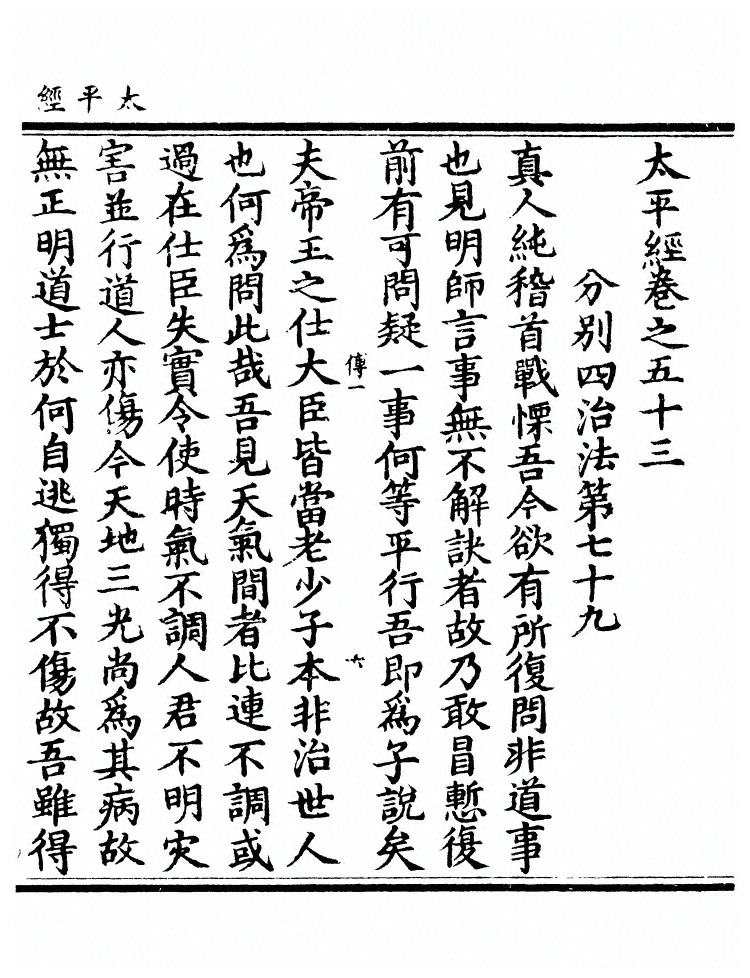 太平經
太平經卷之五十三
分別四治法第七十九
真人純稽首戰慄吾今欲有所復問非道事
也見明師言事無不解訣者故乃敢冒慙復
前有可問疑一事何等平行吾即爲子說矣
傳一
六
夫帝王之仕大臣皆當老少子本非治世人
也何爲問此哉吾見天氣間者比連不調或
過在仕臣失實令使時氣不調人君不明灾
害並行道人亦傷今天地三光尚爲其病故
無正明道士於何自逃獨得不傷故吾雖得